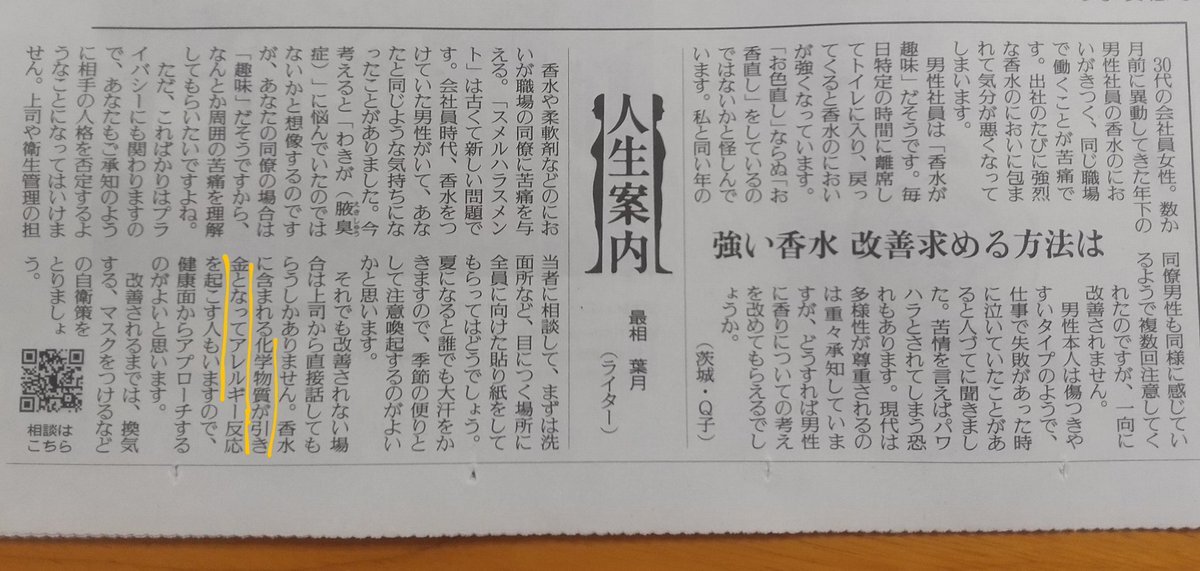 強い香水 改善求める方法は
30代の会社員女性。数か
月前に異動してきた年下の
男性社員の香水のにお
いがきつく、同じ職場
で働くことが苦痛で
す。出社のたびに強烈
な香水のにおいに包ま
れて気分が悪くなって
しまいます。
男性社員は「香水が
趣味」だそうです。毎
日特定の時間に離席し
てトイレに入り、戻っ
てくると香水のにおい
が強くなっています。
「お色直し」ならぬ「お
香直し」をしているの
ではないかと怪しんで
います。私と同い年の
同僚男性も同様に感じてい
るようで複数回注意してく
れたのですが、一向に
改善されません。
男性本人は傷つきや
すいタイプのようで、
仕事で失敗があった時
に泣いていたことがあ
ると人づてに聞きまし
た。苦情を言えばパワ
ハラとされてしまう恐
れもあります。現代は
多様性が尊重されるの
は重々承知していま
すが、どうすれば男性
に香りについての考え
を改めてもらえるでし
ょうか。
(茨城・Q子)
人生案内
最相 葉月
(ライター)
香水や柔軟剤などのにお
いが職場の同僚に苦痛を与
える。「スメルハラスメン
ト」は古くて新しい問題で
す。会社員時代、香水をつ
けていた男性がいて、あな
たと同じような気持ちにな
ったことがありました。今
考えると「わきが(腋臭
えきしゅう
症)」に悩んでいたのでは
ないかと想像するのです
が、あなたの同僚の場合は
「趣味」だそうですから、
なんとか周囲の苦痛を理解
してもらいたいですよね。
ただ、こればかりはプラ
イバシーにも関わりますの
で、あなたもご承知のよう
に相手の人格を否定するよ
うなことになってはいけま
せん。上司や衛生管理の担
当者に相談して、まずは洗
面所など、目につく場所に
全員に向けた貼り紙をして
もらってはどうでしょう。
夏になると誰でも大汗をか
きますので、季節の便りと
して注意喚起するのがよい
かと思います。
それでも改善されない場
合は上司から直接話しても
らうしかありません。香水
に含まれる化学物質が引き
金となってアレルギー反応
を起こす人もいますので、
健康面からアプローチする
のがよいと思います。
改善されるまでは、換気
する、マスクをつけるなど
の自衛策を
とりましょ
う。
相談は
こちら